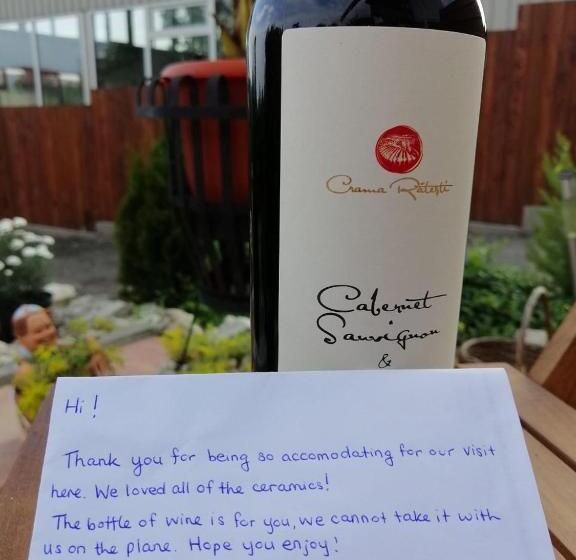 Crama Rătești
Cabernet
Sauvignon
&
Hi!
Thank you for being so accomodating for our visit
here. We loved all of the ceramics!
The bottle of wine is for you, we cannot take it with
us on the plane. Hope you enjoy!